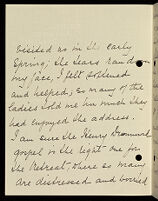 visited us in the early
Spring; the tears ran down
my face, I felt softened
and helped; so many of the
ladies told me how much they
had enjoyed the address.
I am sure the Henry Drummond
gospel is the right one for
the Retreat; where so many
are distressed and worried